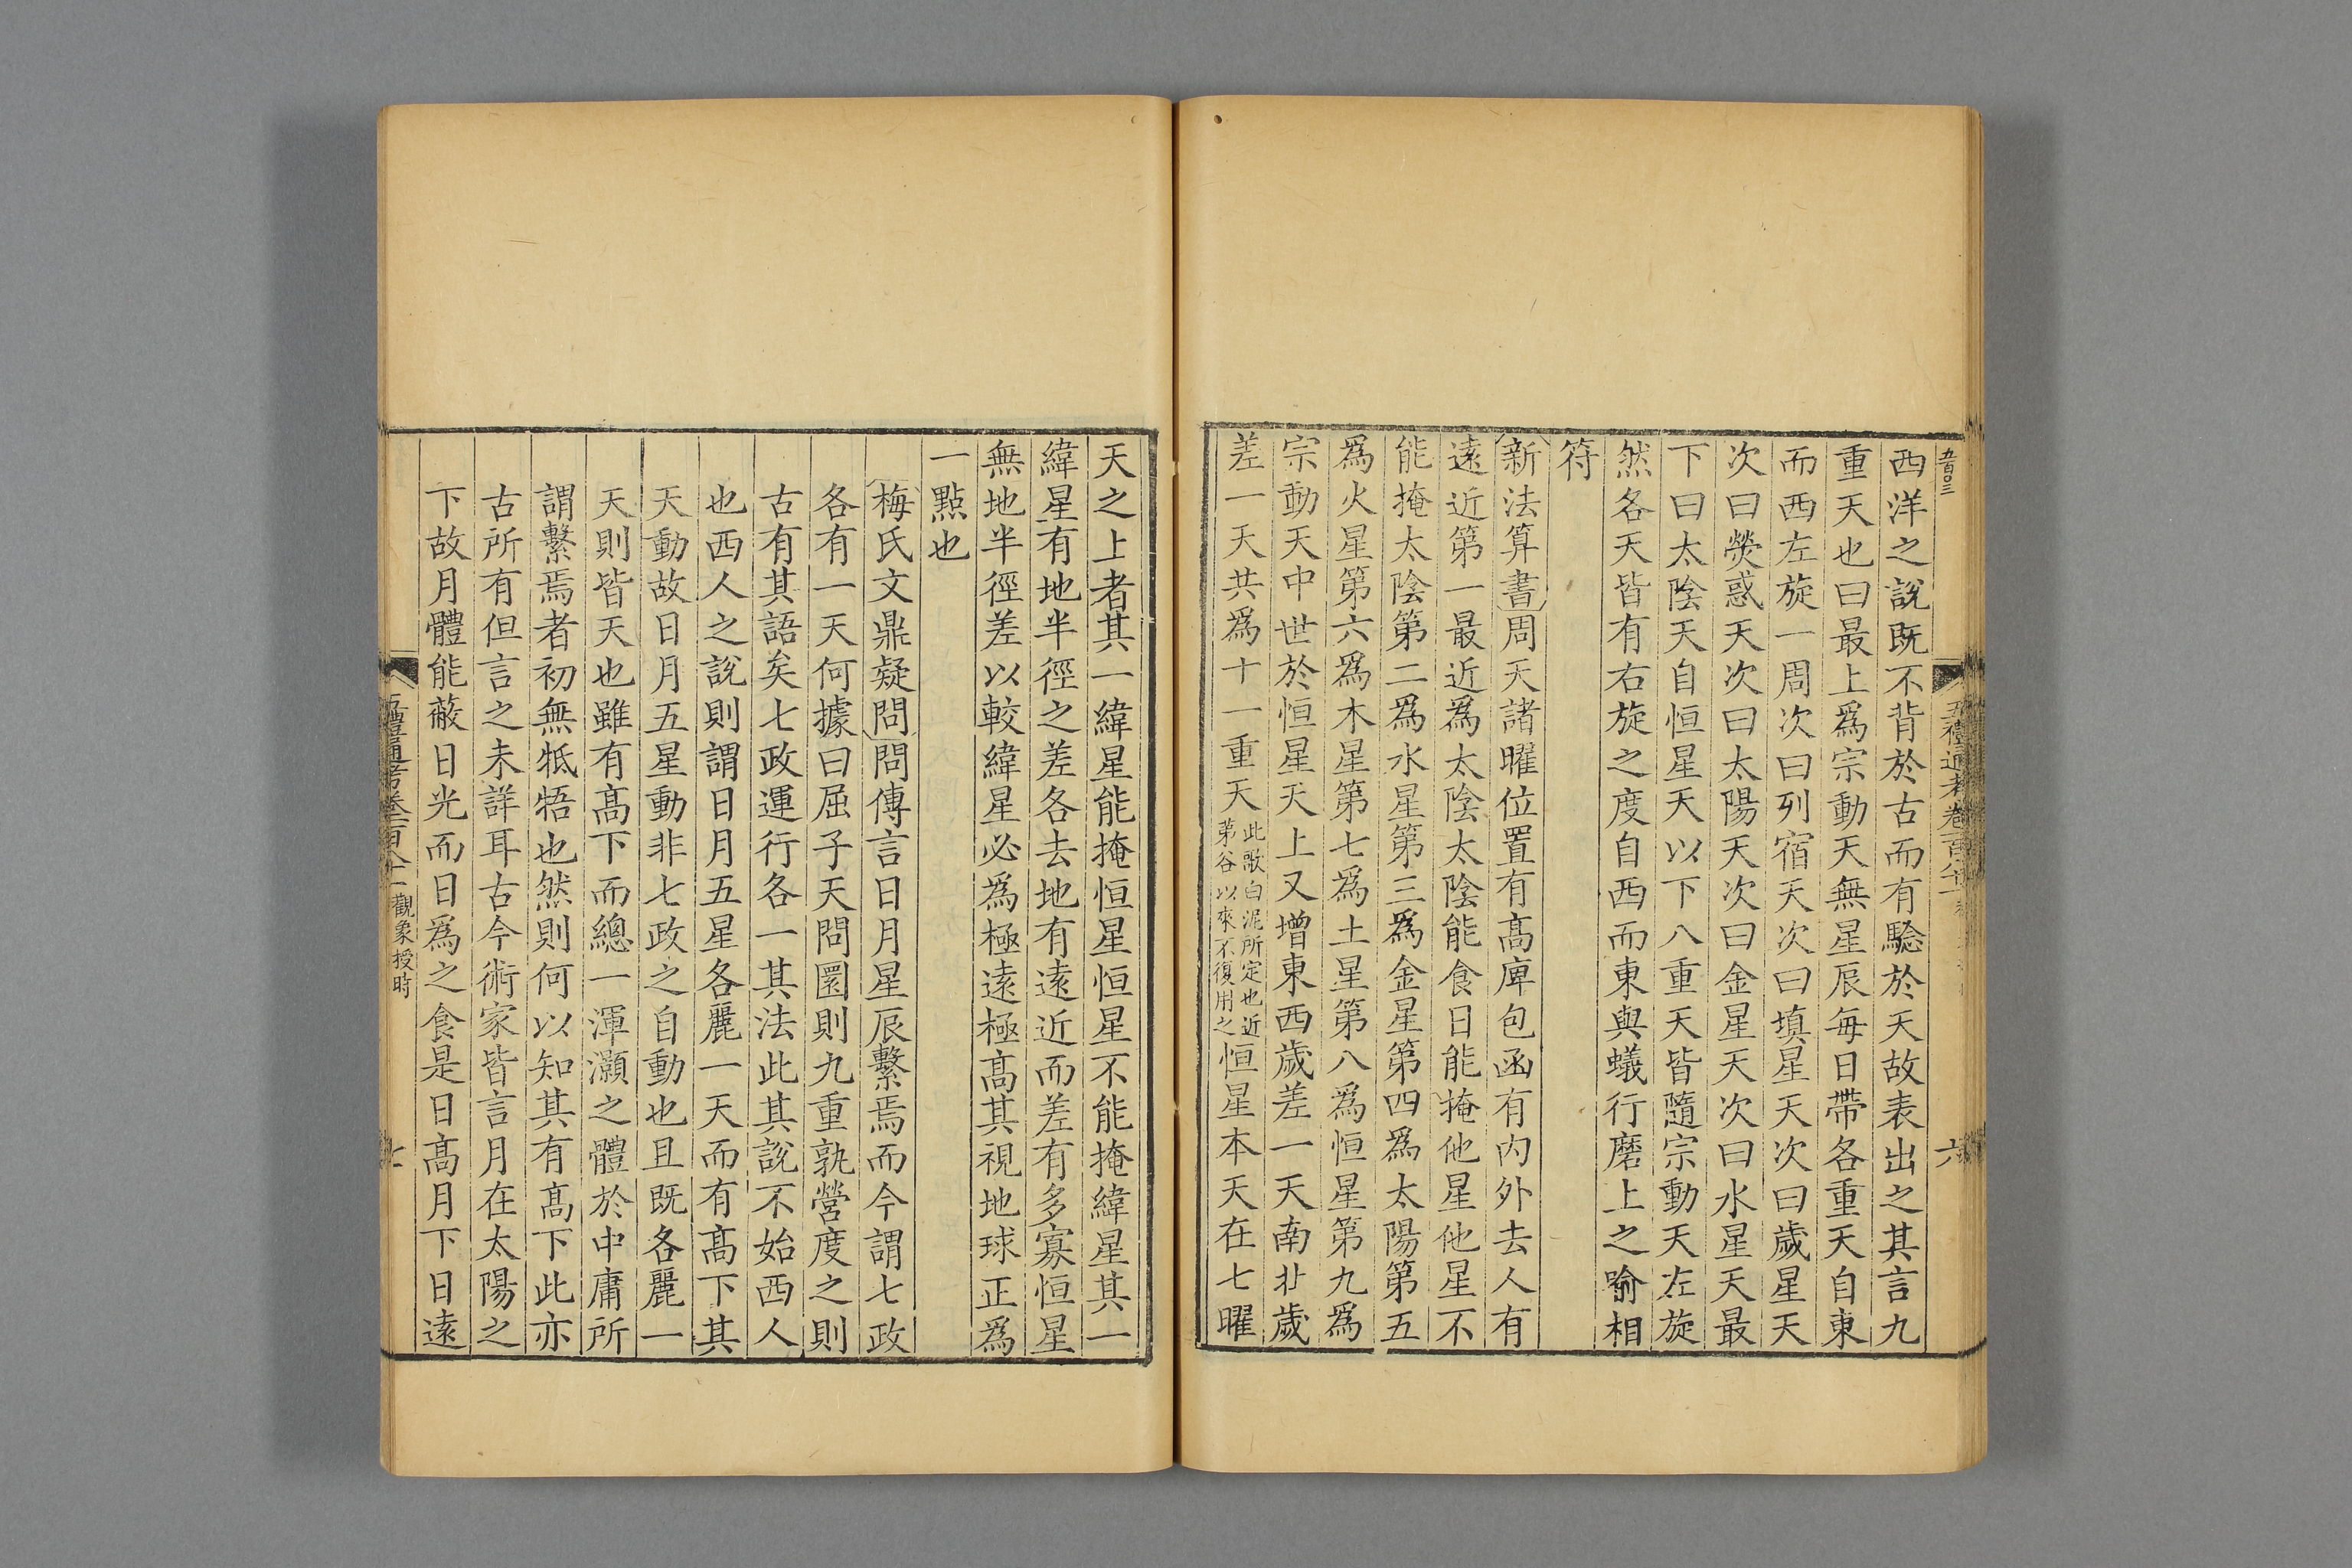 五百〇三
西洋之說既不背於古而有驗於天故表出之其言九
重天也曰最上爲宗動天無星辰每日帶各重天自東
而西左旋一周次曰列宿天次曰填星天次曰歲星天
次曰熒惑天次曰太陽天次曰金星天次曰水星天最
下曰太陰天自恒星天以下八重天皆隨宗動天左旋
然各天皆有右旋之度自西而東與蟻行磨上之喻相
符
新法算書周天諸曜位置有高庳包函有內外去人有
遠近第一最近爲太陰太陰能食日能掩他星他星不
能掩太陰第二爲水星第三爲金星第四爲太陽第五
爲火星第六爲木星第七爲土星第八爲恒星第九爲
宗動天中世於恒星天上又增東西歲差一天南北歲
差一天共爲十一重天此歌白泥所定也近第谷以來不復用之恒星本天在七曜
五禮通考卷一百八十一
六
天之上者其一緯星能掩恒星恒星不能掩緯星其一
緯星有地半徑之差各去地有遠近而差有多寡恒星
無地半徑差以較緯星必爲極遠極高其視地球正爲
一點也
梅氏文鼎疑問問傳言日月星辰繫焉而今謂七政
各有一天何據曰屈子天問圜則九重孰營度之則
古有其語矣七政運行各一其法此其說不始西人
也西人之說則謂日月五星各麗一天而有高下其
天動故日月五星動非七政之自動也且既各麗一
天則皆天也雖有高下而總一渾灝之體於中庸所
謂繫焉者初無牴牾也然則何以知其有高下此亦
古所有但言之未詳耳古今術家皆言月在太陽之
下故月體能蔽日光而日爲之食是日高月下日遠
五禮通考卷一百八十一 觀象授時
七